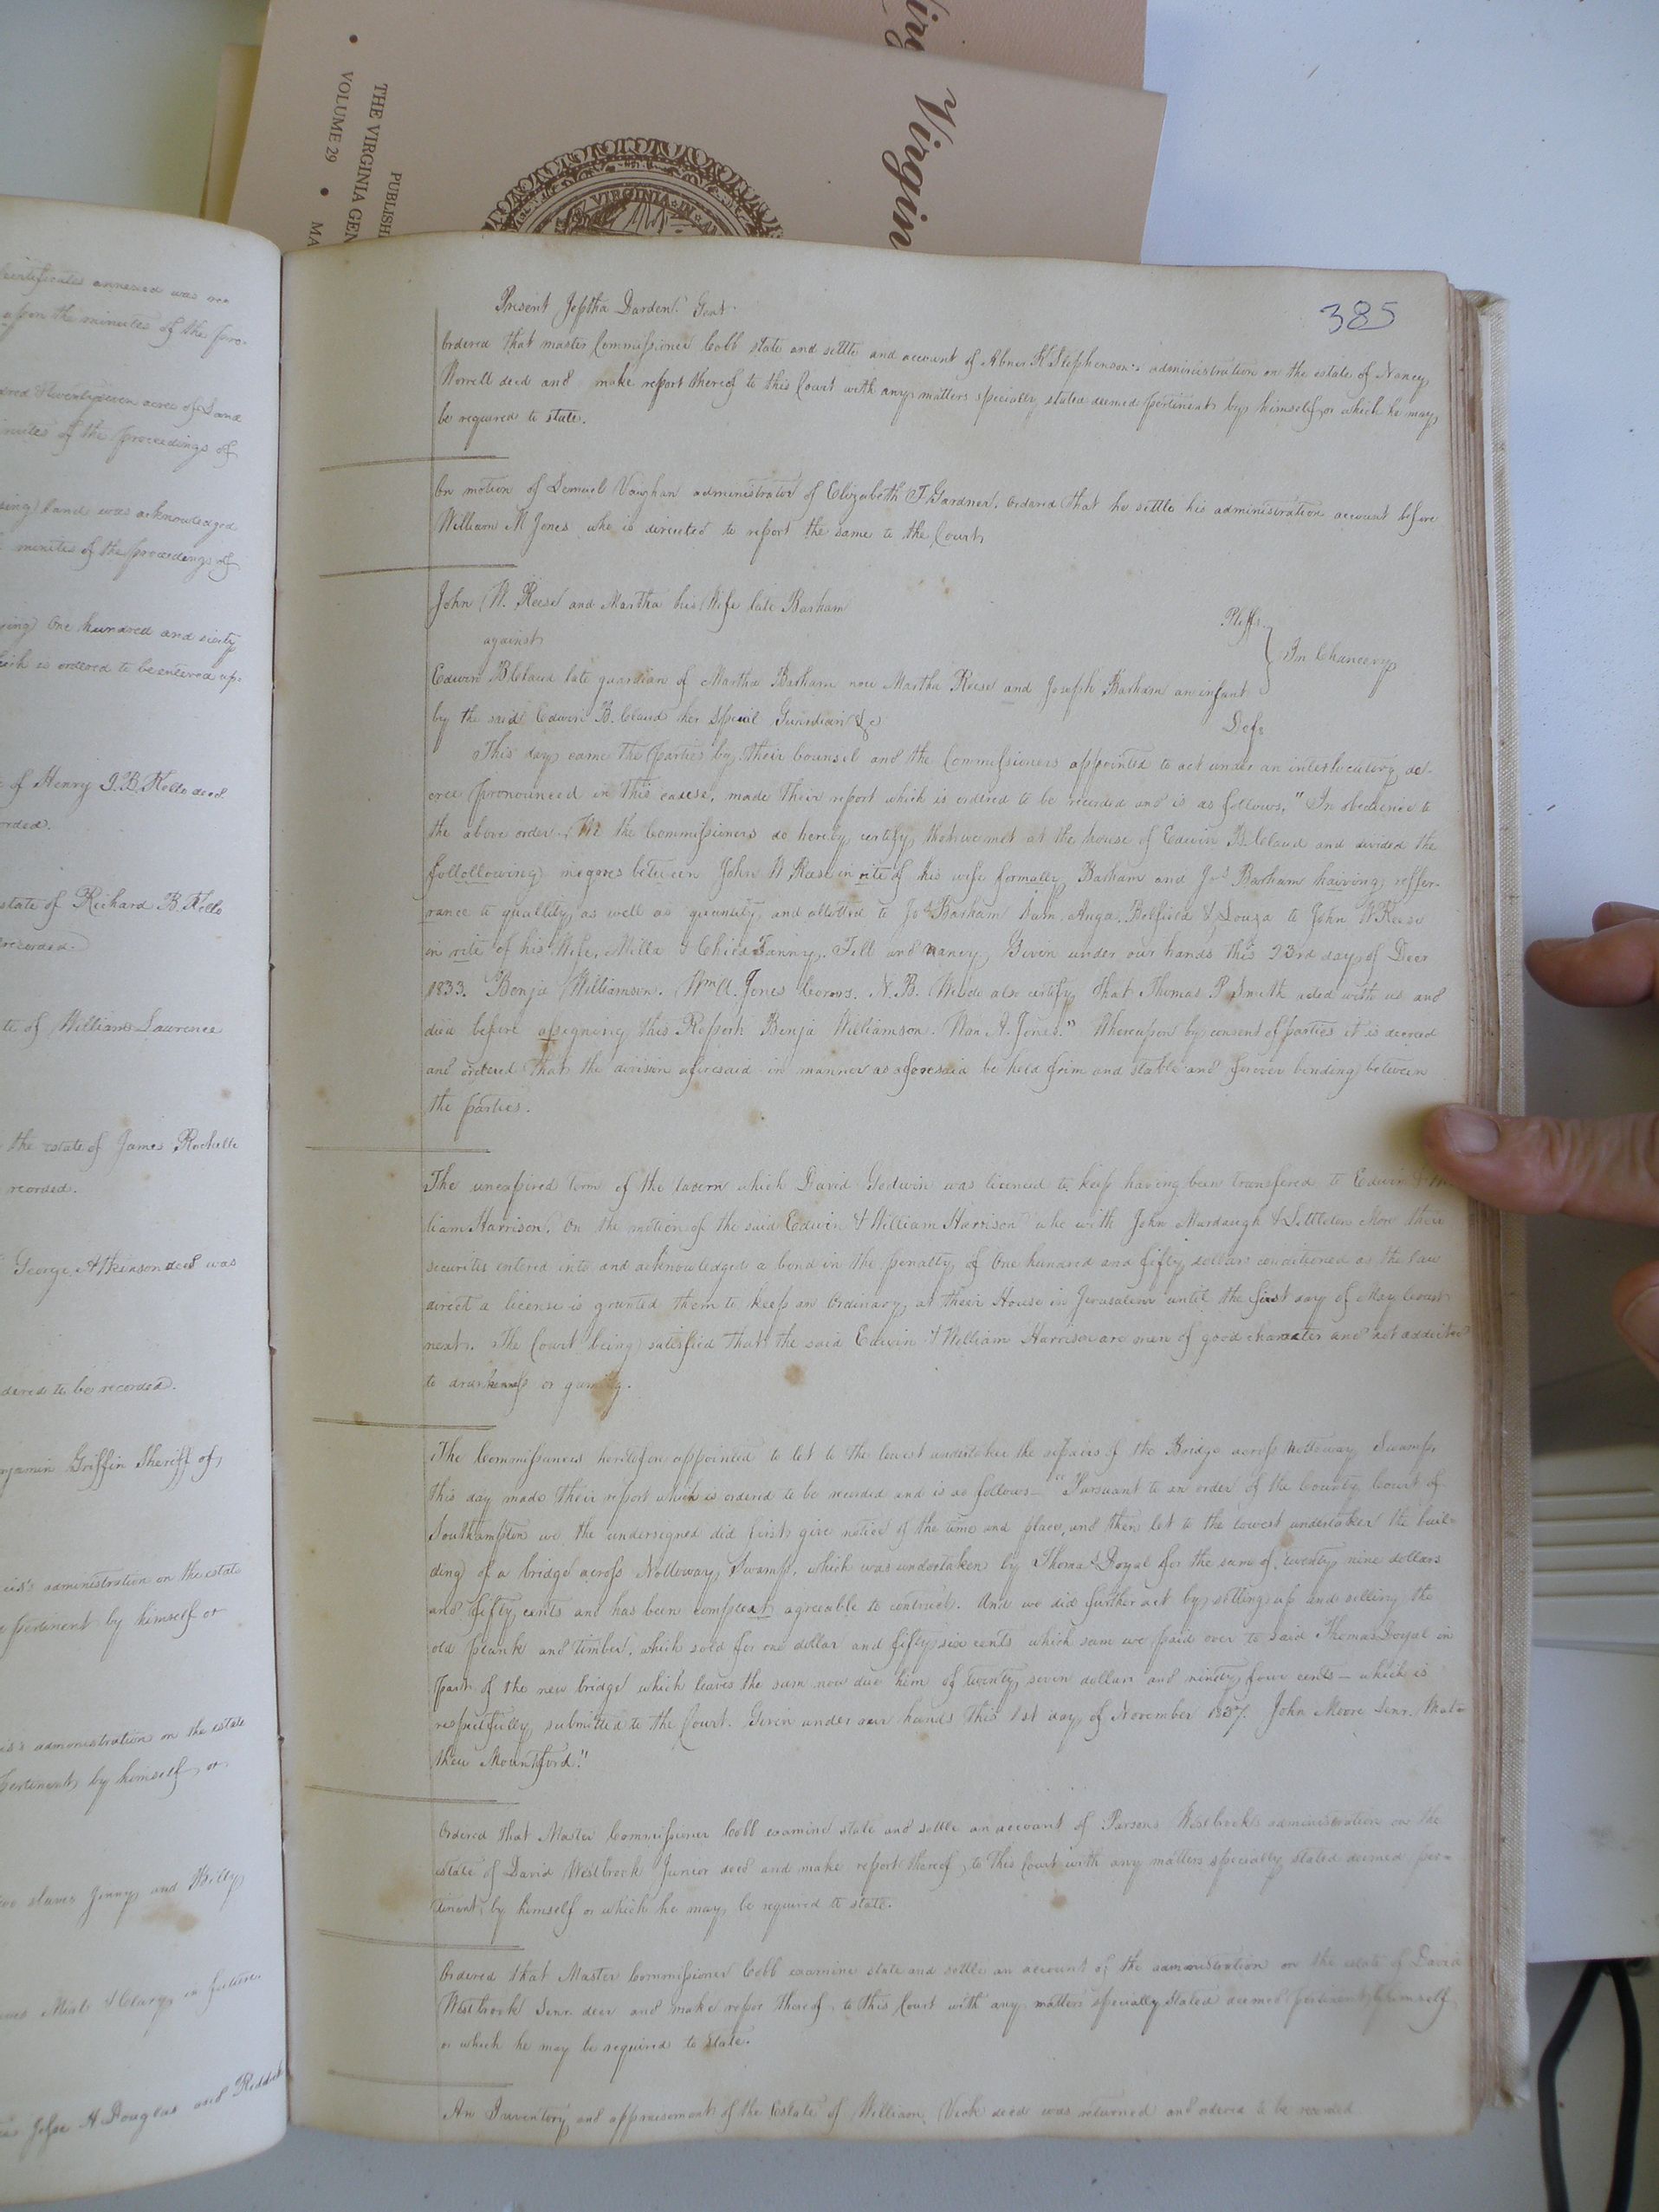 Virgin
PUBLISH
THE VIRGINIA GEN
VOLUME 29 • MA
VIRGINIA IN
certificates annexed was
upon the minutes of the
acres of Land
minutes of the proceedings of
land was acknowledged
minutes of the proceedings of
One hundred and sixty
is ordered to be entered up-
of Henry J. B. Kello decd
state of Richard B. Kello
recorded.
of William Lawrence
the estate of James Rochelle
recorded.
George Atkinson decd was
dered to be recorded.
njamin Griffin Sheriff of
administration on the estate
pertinent by himself or
administration on the estate
pertinent by himself or
slaves Jenny and Willy
& Clary in future.
H Douglas and
385
Present Jeptha Darden Gent.
Ordered that master Commissioner Cobb state and settle and account of Abner H Stephenson's administration on the estate of Nancy
Worrell decd and make report thereof to this Court with any matters specially stated deemed pertinent by himself or which he may
be required to state.
On motion of Lemuel Vaughan administrator of Elizabeth T. Gardner. Ordered that he settle his administration account before
William M Jones who is directed to report the same to the Court
John W. Reese and Martha his Wife late Barham
Pltffs.
against
In Chancery
Edwin B Claud late guardian of Martha Barham now Martha Reese and Joseph Barham an infant
by the said Edwin B. Claud her Special Guardian &c
Defs
This day came the parties by their Counsel and the Commissioners appointed to act under an interlocutory de-
cree pronounced in this causse, made their report which is ordered to be recorded and is as follows, "In obedience to
the above order. We the Commissioners do hereby certify that we met at the house of Edwin B. Claud and divided the
follollowing negroes between John W Reese in rite of his wife formally Barham and Jos Barham haiving reffer-
rance to quallity as well as quantity and allotted to Jos Barham Sam, Anga. Belfield & Louza to John W Reese
in rite of his Wife, Milla & Child Fanny, Till and Nancy Given under our hands this 23rd day of Decr
1833. Benja Williamson. Wm A. Jones Comrs. N.B. We do also certify that Thomas P Smith acted with us and
died before asigning this Report. Benja Williamson. Wm A. Jones." Whereupon by consent of parties it is decreed
and ordered that the division aforesaid in manner as aforesaid be held firm and stable and forever binding between
the parties.
The unexpired term of the tavern which David Godwin was licenced to keep having been transfered to Edwin &
liam Harrison. On the motion of the said Edwin & William Harrison who with John Murdaugh & Littleton their
securities entered into and acknowledged a bond in the penalty of One hundred and fifty dollars conditioned as the law
direct a license is granted them to keep an Ordinary at their House in Jerusalem until the first day of May Court
next. The Court being satisfied that the said Edwin & William Harrison are men of good character and not addicted
to drunkenness or gaming.
The Commissioners heretofore appointed to let to the lowest undertaker the repairs of the Bridge across Nottoway Swamp,
this day made their report which is ordered to be recorded and is as follows— "Pursuant to an order of the County Court of
Southampton we the undersigned did first give notice of the time and place, and then let to the lowest undertaker the buil-
ding of a bridge across Nottoway Swamp, which was undertaken by Thomas Doyal for the sum of twenty nine dollars
and fifty cents and has been compleat agreeable to contract. And we did further act by setting up and selling the
old plank and timber, which sold for one dollar and fifty six cents which sum we paid over to said Thomas Doyal in
part of the new bridge which leaves the sum now due him of twenty seven dollars and ninety four cents — which is
respectfully submitted to the Court. Given under our hands this 1st day of November 1837. John Moore Senr. Mat-
thew Mountford."
Ordered that Master Commissioner Cobb examine state and settle an account of Parsons Westbrooks administration on the
estate of David Westbrook Junior decd and make report thereof to this Court with any matters specially stated deemed per-
tinent by himself or which he may be required to state.
Ordered that Master Commissioner Cobb examine state and settle an account of the administration on the estate of David
Westbrook Senr. decd and make repor thereof to this Court with any matters specially stated deemed pertinent by himself
or which he may be required to state.
An Inventory and appraisement of the Estate of William Vick decd was returned and ordered to be recorded